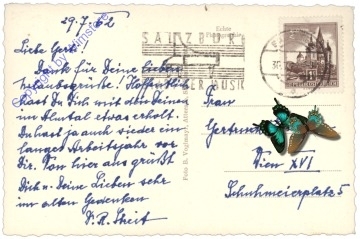 29.7.62
Liebe Gerti!
Dank für Deine lieben
Urlaubsgrüße! Hoffentlich
hast Du Dich mit den Deinen
im Ilmtal etwas erholt.
Du hast ja auch wieder ein
langes Arbeitsjahr vor
Dir. Von hier aus grüßt
Dich u. Deine Lieben sehr
im alten Gedenken
SALZBURG
Frau
Gertrude
Wien XVI
Schuhmeierplatz 5